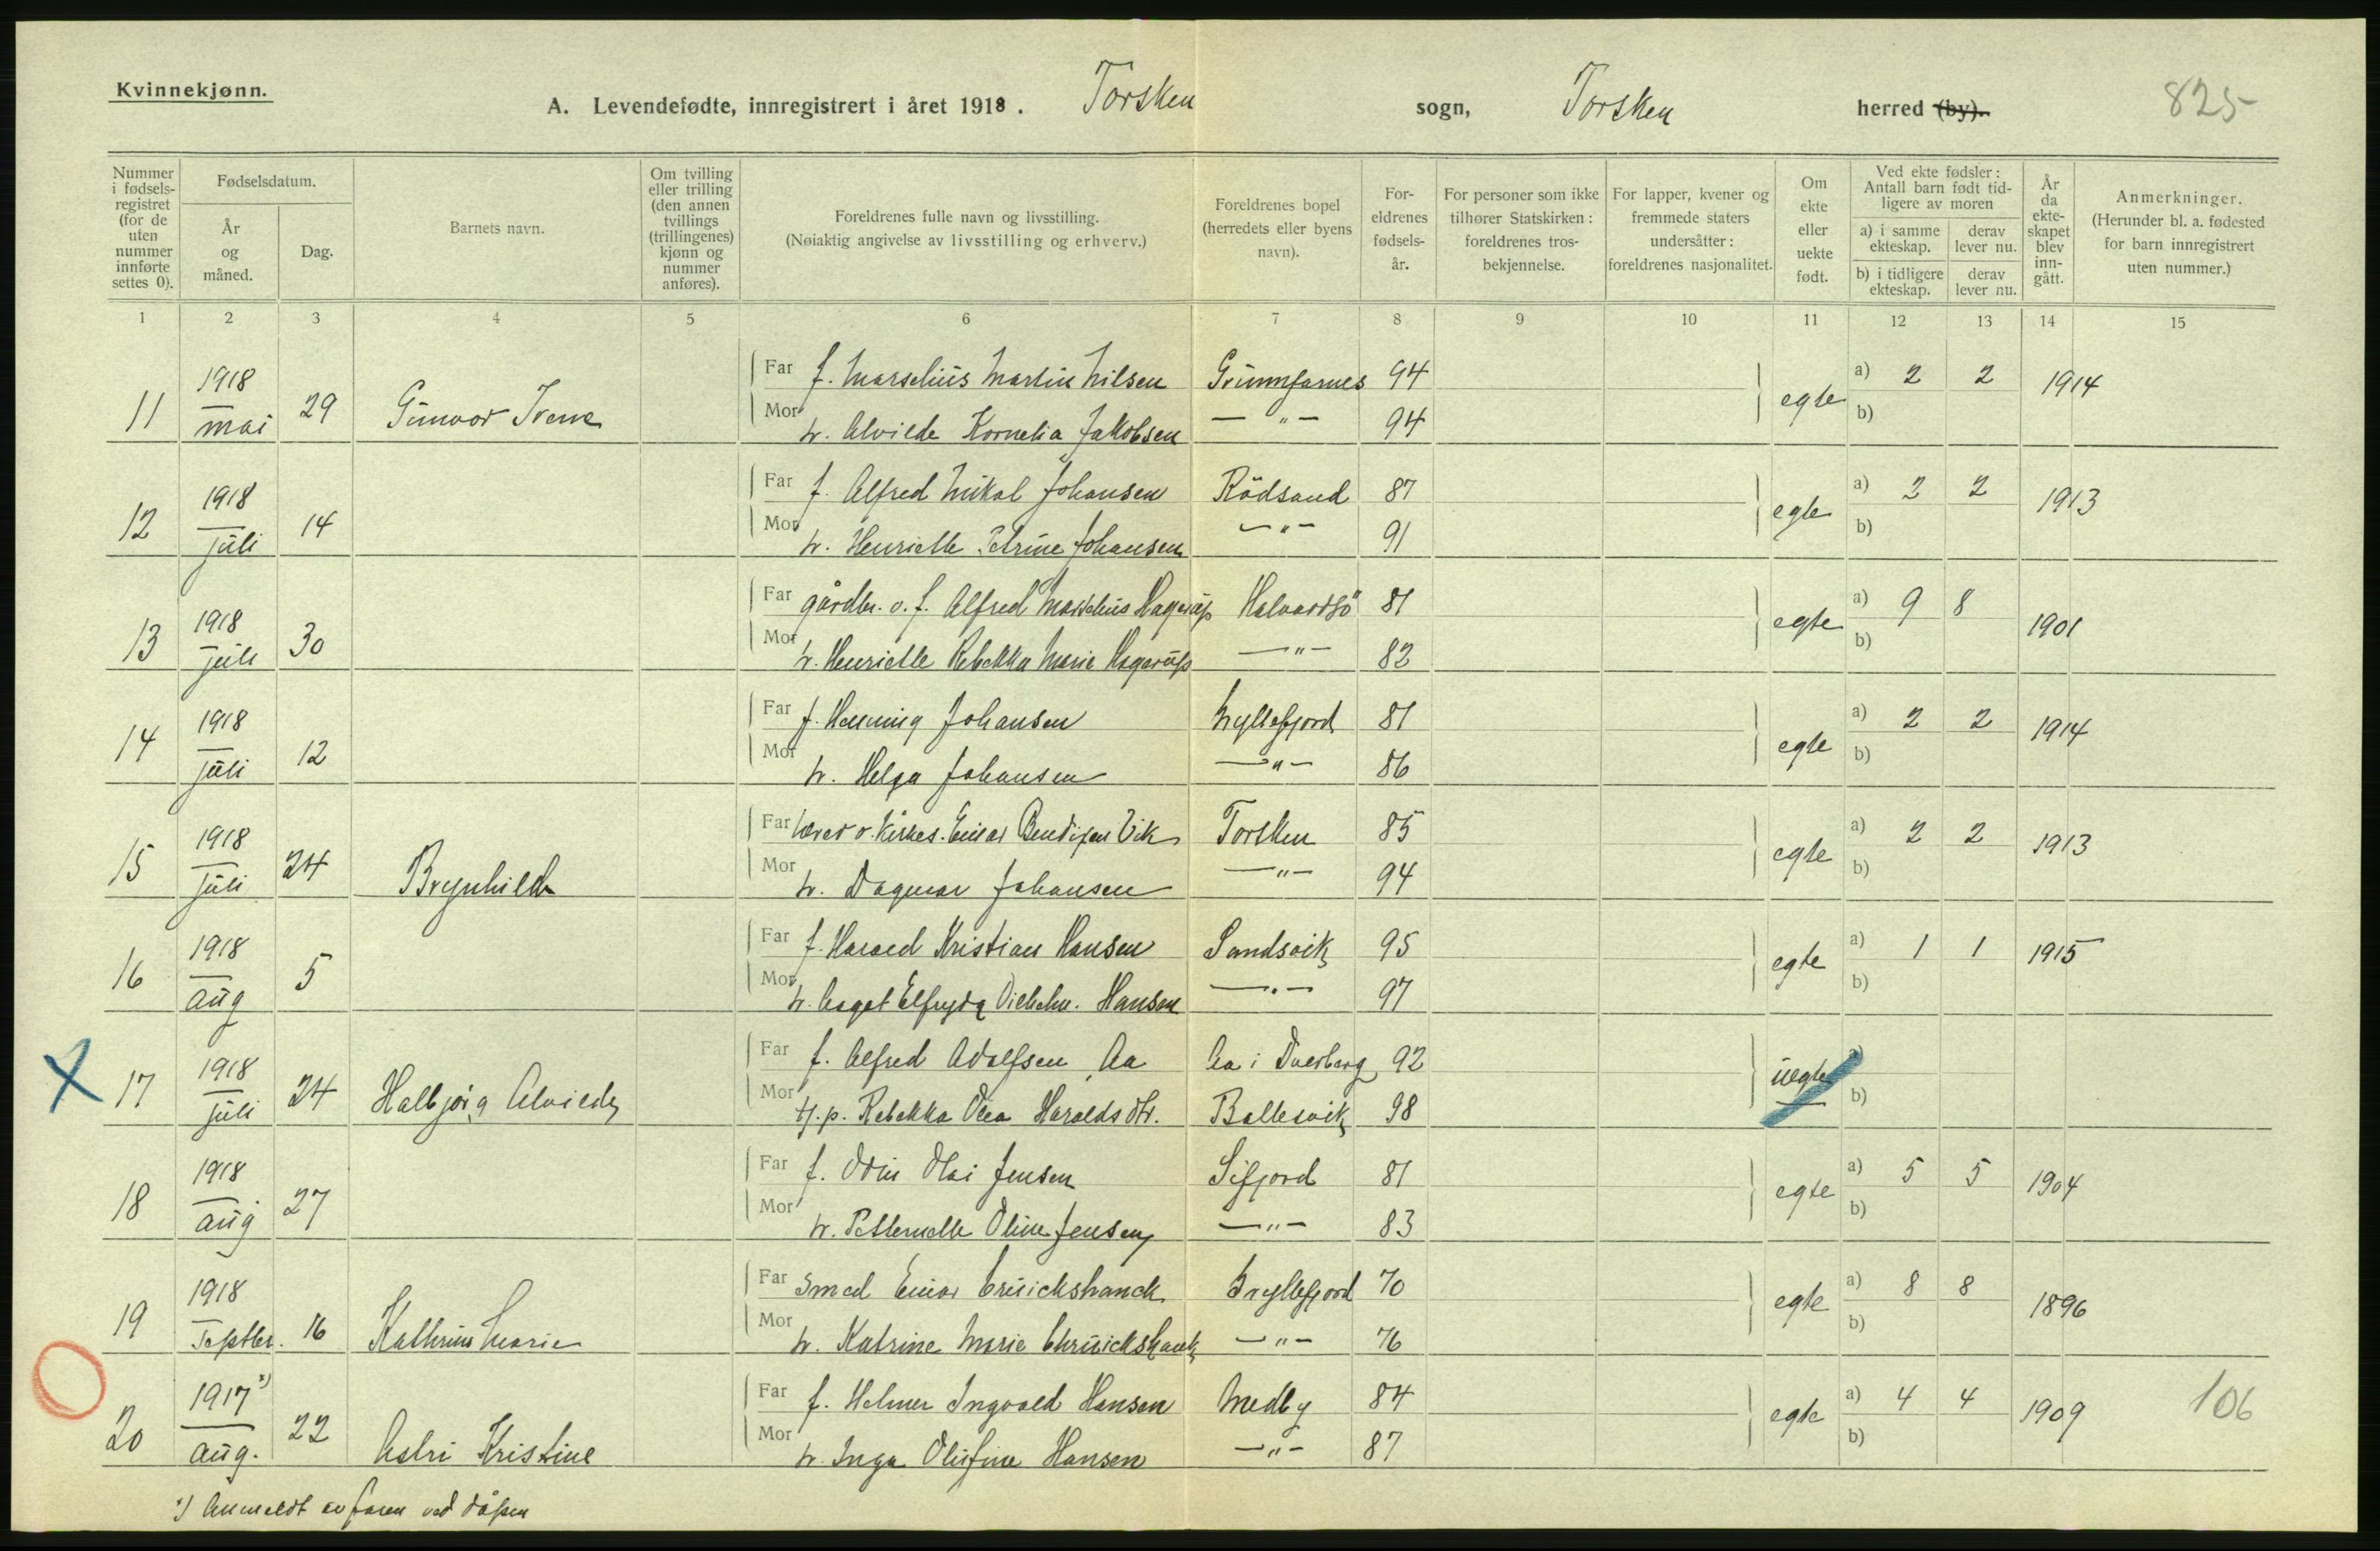 Kvinnekjønn.
A. Levendefødte, innregistrert i året 1918. Torsken sogn, Torsken herred (by). 825
Nummer i fødselsregistret (for de uten nummer innførte settes 0).
Fødselsdatum.
År og måned.
Dag.
Barnets navn.
Om tvilling eller trilling (den annen tvillings (trillingenes) kjønn og nummer anføres).
Foreldrenes fulle navn og livsstilling.
(Nøiaktig angivelse av livsstilling og erhverv.)
Foreldrenes bopel (herredets eller byens navn).
Foreldrenes fødselsår.
For personer som ikke tilhører Statskirken: foreldrenes trosbekjennelse.
For lapper, kvener og fremmede staters undersåtter: foreldrenes nasjonalitet.
Om ekte eller uekte født.
Ved ekte fødsler: Antall barn født tidligere av moren
a) i samme ekteskap.
derav lever nu.
b) i tidligere ekteskap.
derav lever nu.
År da ekteskapet blev inngått.
Anmerkninger.
(Herunder bl. a. fødested for barn innregistrert uten nummer.)
1 2 3 4 5 6 7 8 9 10 11 12 13 14 15
11 1918 mai 29 Gunvor Irene
Far f. Marselius Martin Nilsen Grunnfarnes 94 egte a) 2 2 1914
Mor h. Alvilde Kornelia Jakobsen — " — 94 b)
12 1918 juli 14
Far f. Alfred Mikal Johansen Rödsand 87 egte a) 2 2 1913
Mor h. Henriette Petrine Johansen — " — 91 b)
13 1918 juli 30
Far gårdbr. o. f. Alfred Marselius Hagerup Halvardsö 81 egte a) 9 8 1901
Mor h. Henriette Rebekka Marie Hagerup — " — 82 b)
14 1918 juli 12
Far f. Henning Johansen Gryllefjord 81 egte a) 2 2 1914
Mor h. Helga Johansen — " — 86 b)
15 1918 juli 24 Brynhild
Far lærer o. kirkes. Einar Bendixen Vik Torsken 85 egte a) 2 2 1913
Mor h. Dagmar Johansen — " — 94 b)
16 1918 aug 5
Far f. Harald Kristian Hansen Sandsvik 95 egte a) 1 1 1915
Mor h. Aagot Hansen — " — 97 b)
17 1918 juli 24 Halbjørg Alvilde
Far f. Alfred Adolfsen Aa Aa i Dverberg 92 uegte a)
Mor tj.p. Rebekka Olea Haraldsdtr. Ballesvik 98 b)
18 1918 aug 27
Far f. Odin Olai Jensen Sifjord 81 egte a) 5 5 1904
Mor h. Petternelle Oline Jensen — " — 83 b)
19 1918 septbr. 16 Kathrine Marie
Far Smed Einar Cruickshanck Gryllefjord 70 egte a) 8 8 1896
Mor h. Katrine Marie Chruickshank — " — 76 b)
20 1917 x) aug. 22 Astri Kristine
Far f. Helmer Ingvald Hansen Medby 84 egte a) 4 4 1909 106
Mor h. Inga Olufine Hansen — " — 87 b)
x) Anmeldt av faren ved dåpen